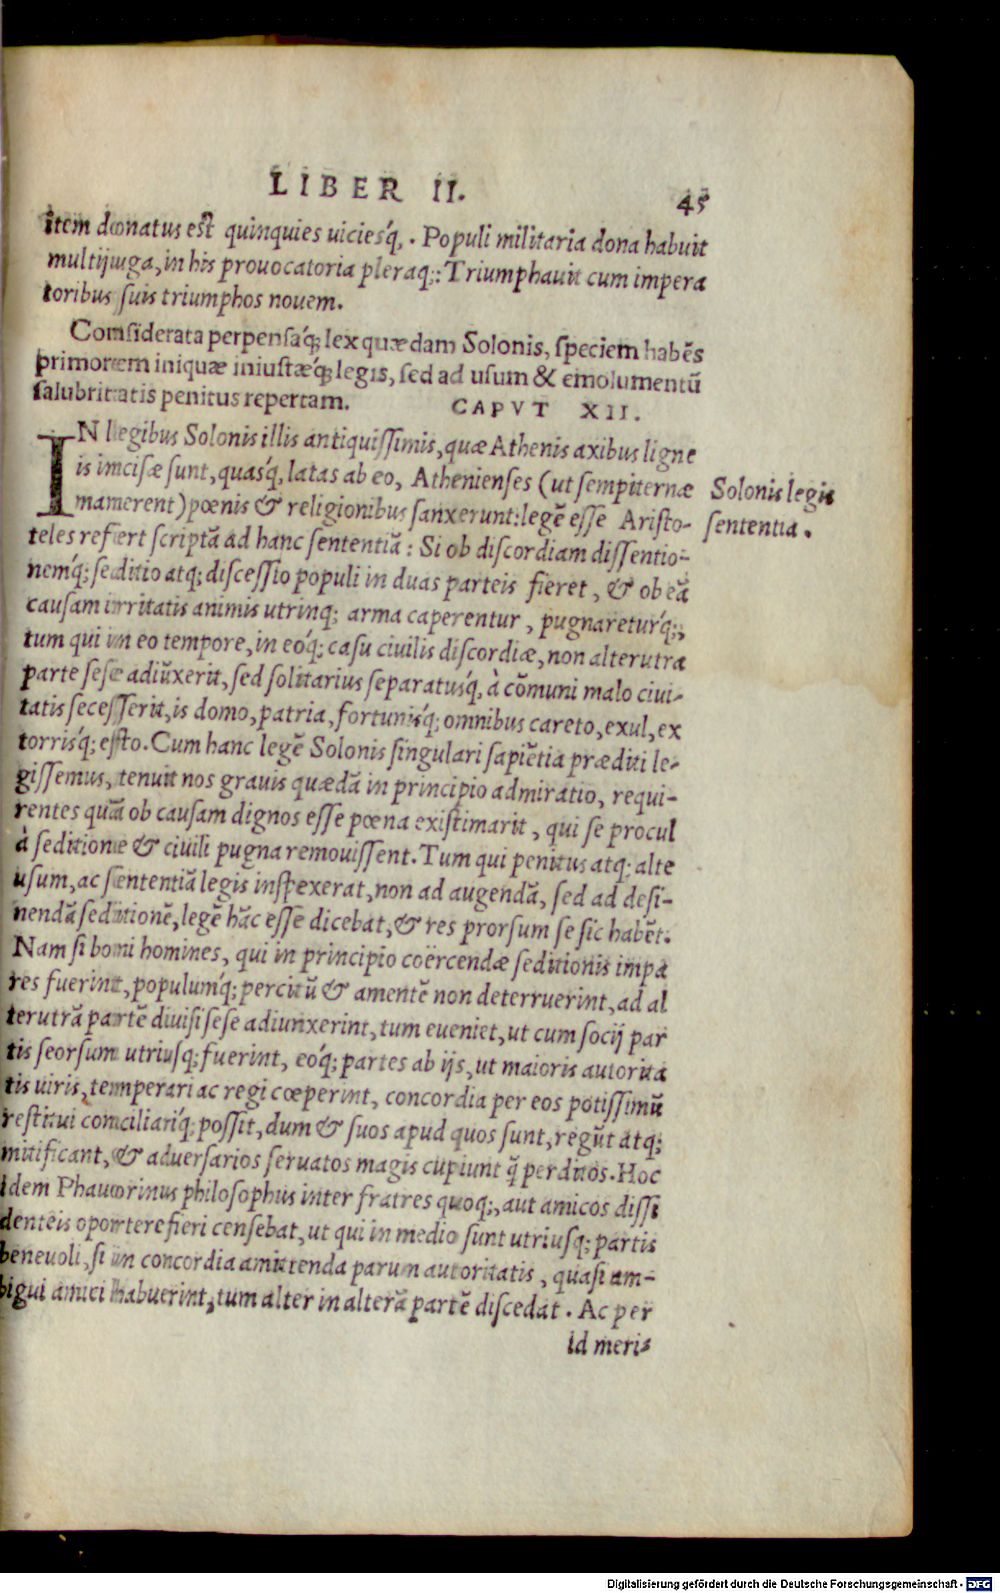 LIBER II. 45
item donatus est quinquies uiciesq́;. Populi militaria dona habuit
multijuga, in his prouocatoria pleraq;: Triumphauit cum impera
toribus suis triumphos nouem.
Considerata perpensaq́; lex quædam Solonis, speciem habẽs
primorem iniquæ iniustæq́; legis, sed ad usum & emolumentũ
salubritatis penitus repertam. CAPVT XII.
IN legibus Solonis illis antiquissimis, quæ Athenis axibus ligne
is incisæ sunt, quasq́, latas ab eo, Athenienses (ut sempiternæ
manerent) pœnis & religionibus sanxerunt: legẽ esse Aristo-
teles refert scriptã ad hanc sententiã: Si ob discordiam dissentio-
nemq́; seditio atq; discessio populi in duas parteis fieret, & ob eã
causam irritatis animis utrinq; arma caperentur, pugnareturq́;,
tum qui in eo tempore, in eoq́; casu ciuilis discordiæ, non alterutra
parte sese adiũxerit, sed solitarius separatusq́, à cõmuni malo ciui-
tatis secesserit, is domo, patria, fortunisq́; omnibus careto, exul, ex
torrisq́; esto. Cum hanc legẽ Solonis singulari sapiẽtia præditi le-
gissemus, tenuit nos grauis quædã in principio admiratio, requi-
rentes quã ob causam dignos esse pœna existimarit, qui se procul
à seditione & ciuili pugna remouissent. Tum qui penitus atq; alte
usum, ac sententiã legis inspexerat, non ad augendã, sed ad desi-
nendã seditionẽ, legẽ hãc esse dicebat, & res prorsum se sic habẽt.
Nam si boni homines, qui in principio coërcendæ seditionis impa
res fuerint, populumq́; percitũ & amentẽ non deterruerint, ad al
terutrã partẽ diuisi sese adiunxerint, tum eueniet, ut cum socij par
tis seorsum utriusq; fuerint, eoq́; partes ab ijs, ut maioris autorita
tis uiris, temperari ac regi cœperint, concordia per eos potissimũ
restitui conciliariq́; possit, dum & suos apud quos sunt, regũt atq;
mitificant, & aduersarios seruatos magis cupiunt q̃ perditos. Hoc
idem Phauorinus philosophus inter fratres quoq;, aut amicos dissi
denteis oportere fieri censebat, ut qui in medio sunt utriusq; partis
beneuoli, si in concordia amittenda parum autoritatis, quasi am-
bigui amici habuerint, tum alter in alterã partẽ discedat. Ac per
id meri-
Solonis legis
sententia.
Digitalisierung gefördert durch die Deutsche Forschungsgemeinschaft - DFG